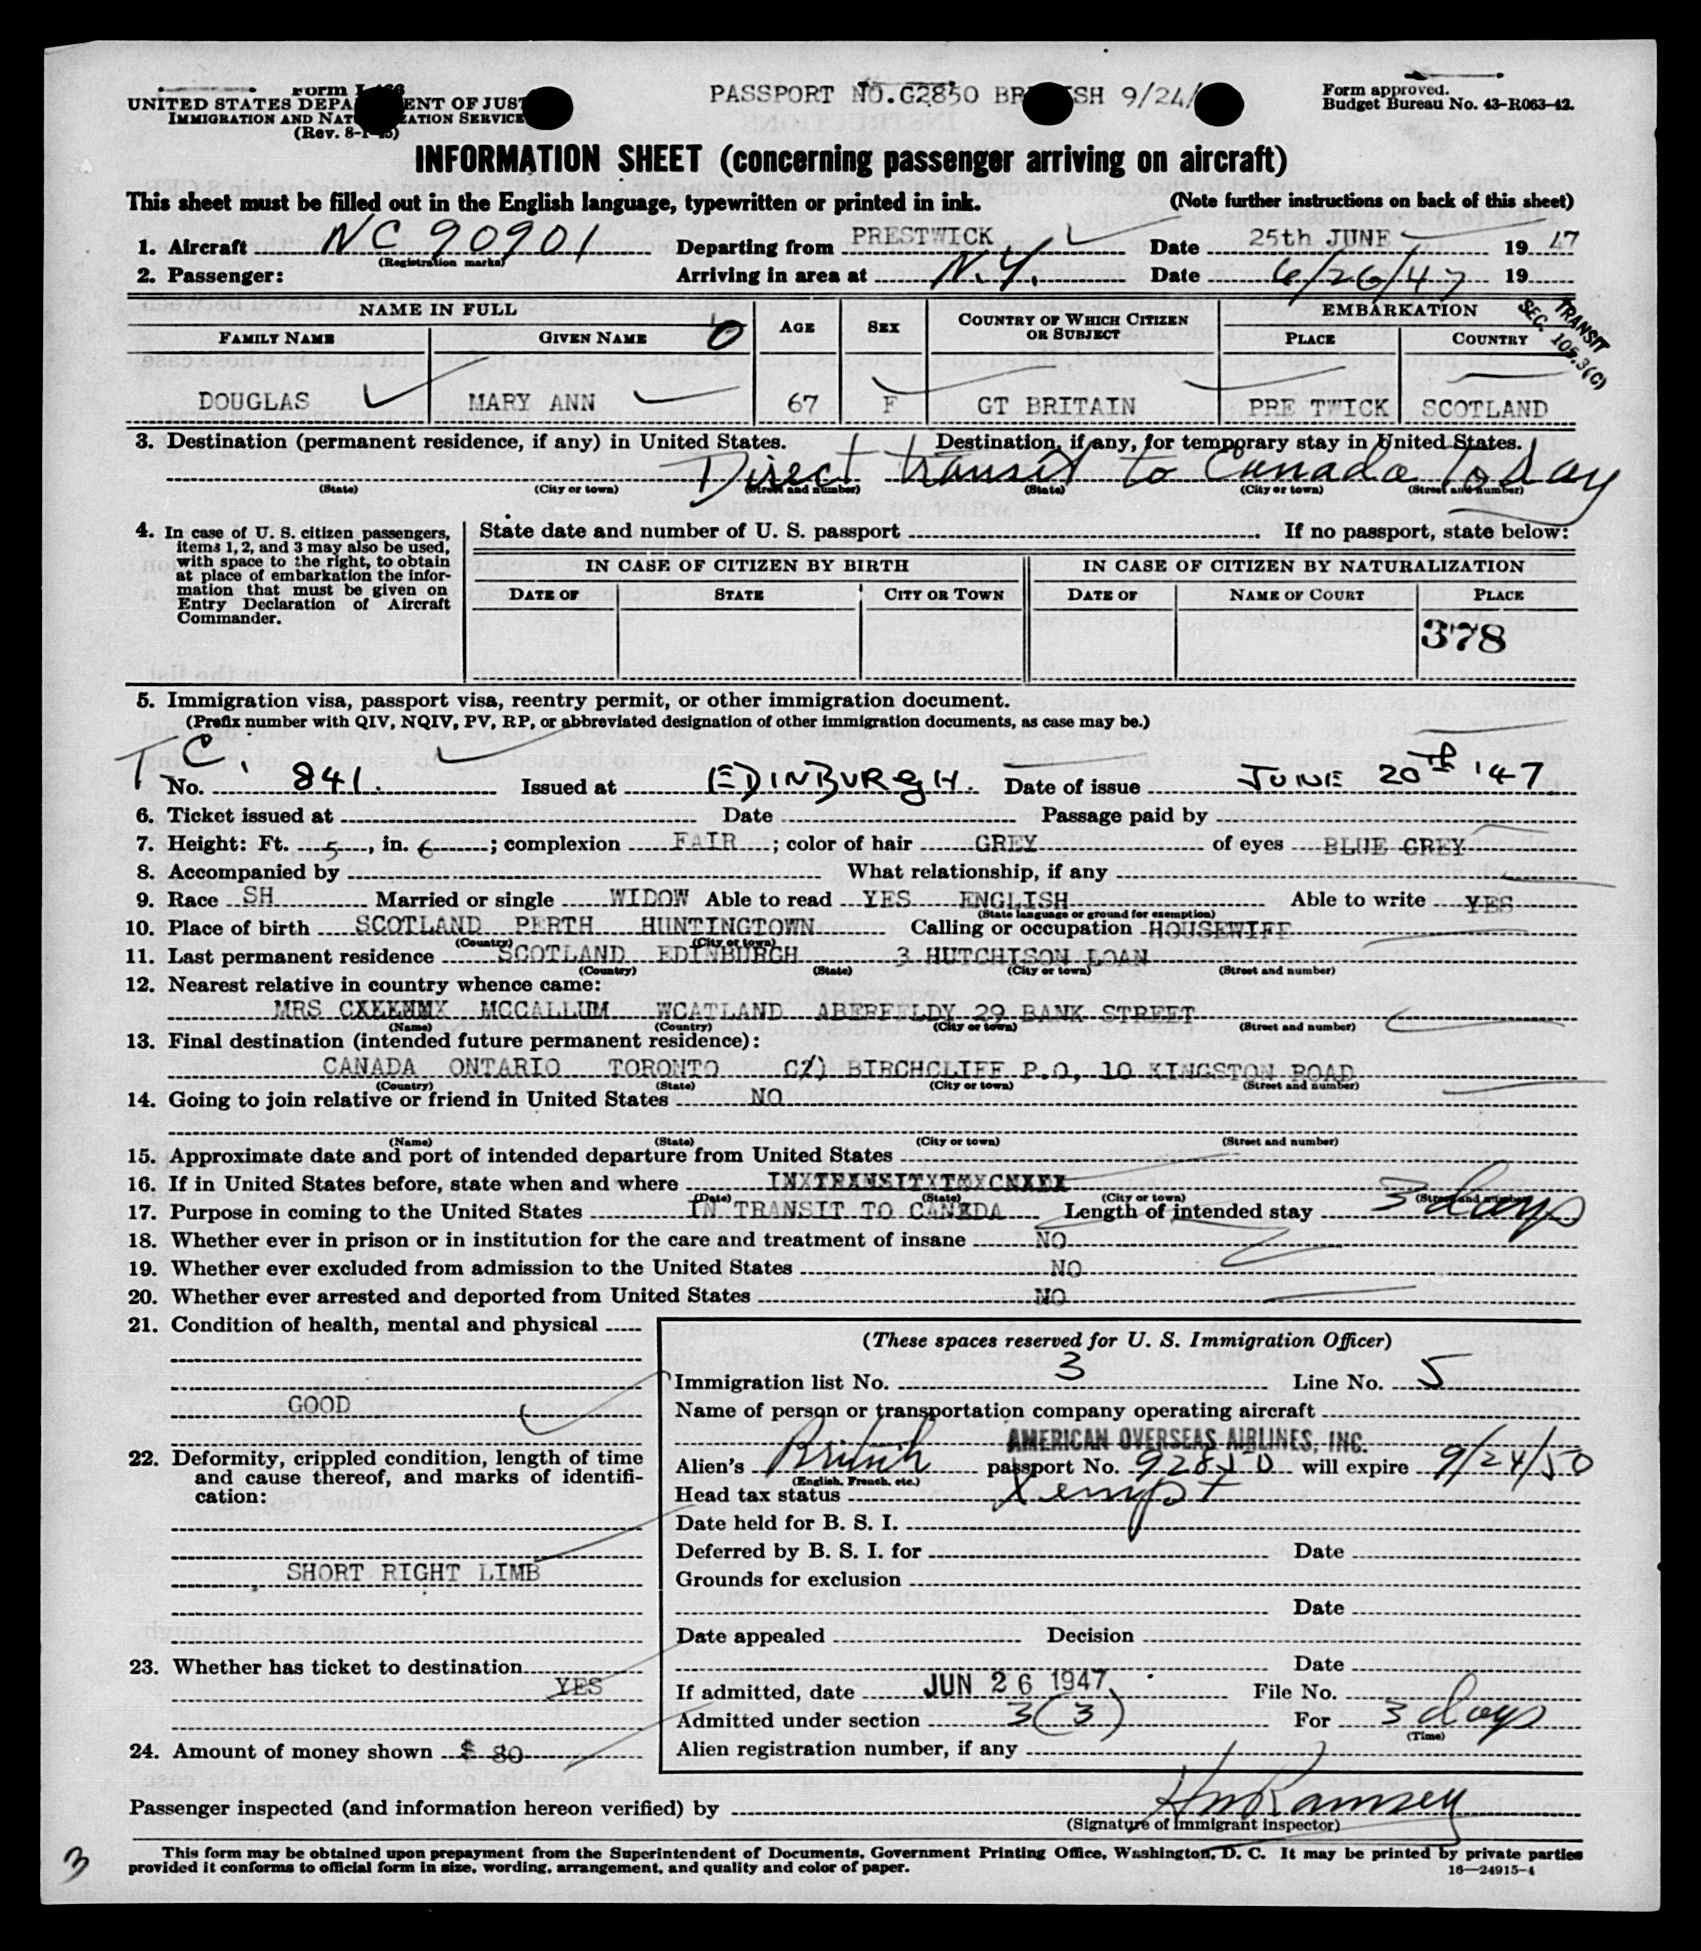 PASSPORT NO. G2850 9/24/
UNITED STATES
IMMIGRATION AND SERVICE
Form approved.
Budget Bureau No. 43-R063-42.
INFORMATION SHEET (concerning passenger arriving on aircraft)
This sheet must be filled out in the English language, typewritten or printed in ink. (Note further instructions on back of this sheet)
1. Aircraft NC 90901 Departing from PRESTWICK Date 25th JUNE 1947
(Registration marks)
2. Passenger: Arriving in area at N.Y. Date 6/26/47 19
NAME IN FULL AGE SEX COUNTRY OF WHICH CITIZEN OR SUBJECT EMBARKATION
FAMILY NAME GIVEN NAME PLACE COUNTRY
TRANSIT
SEC. 105.3(C)
DOUGLAS MARY ANN 67 F GT BRITAIN PRE TWICK SCOTLAND
3. Destination (permanent residence, if any) in United States. Destination, if any, for temporary stay in United States.
Direct transit to Canada today
(State) (City or town) (Street and number) (State) (City or town) (Street and number)
4. In case of U. S. citizen passengers, items 1, 2, and 3 may also be used, with space to the right, to obtain at place of embarkation the information that must be given on Entry Declaration of Aircraft Commander.
State date and number of U. S. passport . If no passport, state below:
IN CASE OF CITIZEN BY BIRTH IN CASE OF CITIZEN BY NATURALIZATION
DATE OF STATE CITY OR TOWN DATE OF NAME OF COURT PLACE
378
5. Immigration visa, passport visa, reentry permit, or other immigration document.
(Prefix number with QIV, NQIV, PV, RP, or abbreviated designation of other immigration documents, as case may be.)
T.C.
No. 841. Issued at EDINBURGH. Date of issue JUNE 20th '47
6. Ticket issued at Date Passage paid by
7. Height: Ft. 5, in. 6; complexion FAIR; color of hair GREY of eyes BLUE GREY
8. Accompanied by What relationship, if any
9. Race SH Married or single WIDOW Able to read YES ENGLISH Able to write YES
(State language or ground for exemption)
10. Place of birth SCOTLAND PERTH HUNTINGTOWN Calling or occupation HOUSEWIFE
(Country) (City or town)
11. Last permanent residence SCOTLAND EDINBURGH 3 HUTCHISON LOAN
(Country) (State) (City or town) (Street and number)
12. Nearest relative in country whence came:
MRS MCCALLUM WCATLAND ABERFELDY 29 BANK STREET
(Name) (Country) (City or town) (Street and number)
13. Final destination (intended future permanent residence):
CANADA ONTARIO TORONTO C/O BIRCHCLIFF P.O, 10 KINGSTON ROAD
(Country) (State) (City or town) (Street and number)
14. Going to join relative or friend in United States NO
(Name) (State) (City or town) (Street and number)
15. Approximate date and port of intended departure from United States
16. If in United States before, state when and where
(Date) (State) (City or town) (Street and number)
17. Purpose in coming to the United States IN TRANSIT TO CANADA Length of intended stay 3 days
18. Whether ever in prison or in institution for the care and treatment of insane NO
19. Whether ever excluded from admission to the United States NO
20. Whether ever arrested and deported from United States NO
21. Condition of health, mental and physical
GOOD
22. Deformity, crippled condition, length of time and cause thereof, and marks of identification:
SHORT RIGHT LIMB
23. Whether has ticket to destination
YES
24. Amount of money shown $ 80
(These spaces reserved for U. S. Immigration Officer)
Immigration list No. 3 Line No. 5
Name of person or transportation company operating aircraft
AMERICAN OVERSEAS AIRLINES, INC.
Alien's British passport No. 92850 will expire 9/24/50
(English, French, etc.)
Head tax status Xempt
Date held for B. S. I.
Deferred by B. S. I. for Date
Grounds for exclusion
Date
Date appealed Decision
Date
If admitted, date JUN 26 1947 File No.
Admitted under section 3(3) For 3 days
(Time)
Alien registration number, if any
Passenger inspected (and information hereon verified) by Ramsey
(Signature of Immigrant Inspector)
3
This form may be obtained upon prepayment from the Superintendent of Documents, Government Printing Office, Washington, D. C. It may be printed by private parties
provided it conforms to official form in size, wording, arrangement, and quality and color of paper. 16—24915-4